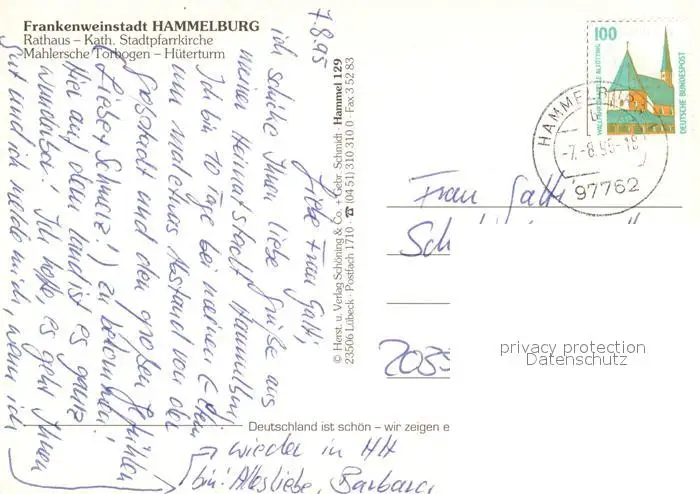 Frankenweinstadt HAMMELBURG
Rathaus – Kath. Stadtpfarrkirche
Mahlersche Torbogen – Hüterturm
7.8.95
Liebe Frau Gatti,
ich schicke Ihnen liebe Grüße aus
meiner Heimatstadt Hammelburg
Ich bin 10 Tage bei meinen Eltern
um mal etwas Abstand von der
Großstadt und den großen Gefühlen
(Liebesschmerz!) zu bekommen!
Hier auf dem Land ist es ganz
wunderbar! Ich hoffe, es geht Ihnen
gut und ich melde mich, wenn ich
wieder in HH
bin! Alles Liebe, Barbara
© Herst. u. Verlag Schöning & Co. + Gebr. Schmidt · Hammel 129
23506 Lübeck · Postfach 1710 · ☎ (04 51) 310 310 · Fax 3 52 83
Deutschland ist schön – wir zeigen e
100
WALLFAHRTSKAPELLE ALTÖTTING
DEUTSCHE BUNDESPOST
HAMMELBURG
-7.-8.95-18
97762
Frau Gatti
Sch
privacy protection
Datenschutz